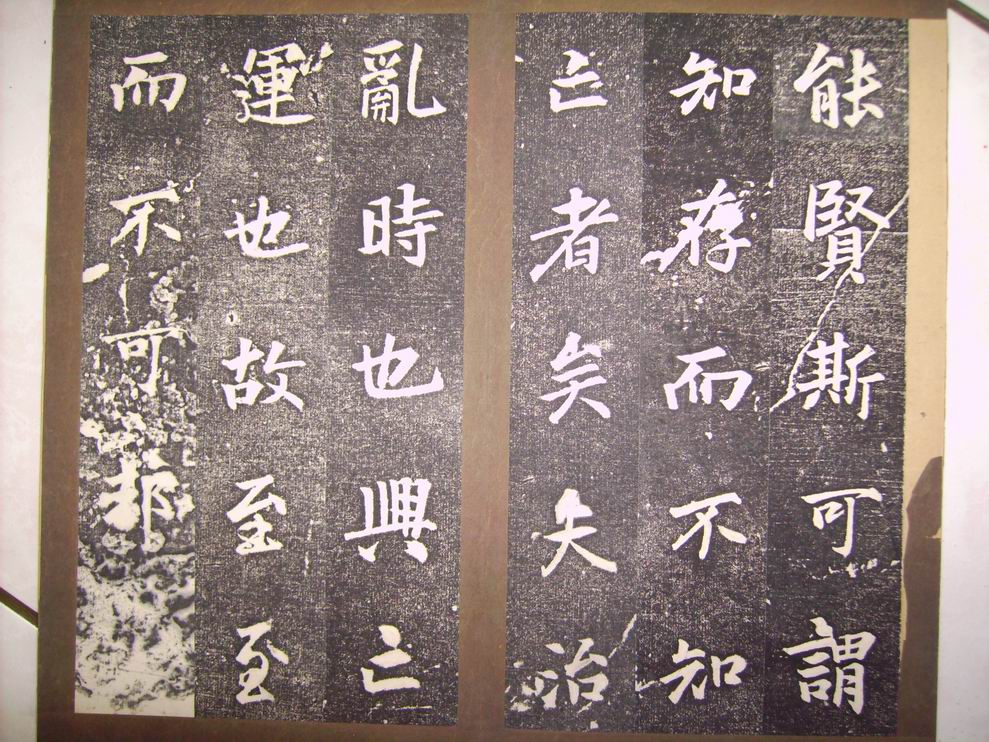 能賢斯可謂
知存而不知
亡者矣夫治
亂時也興亡
運也故至至
而不可却